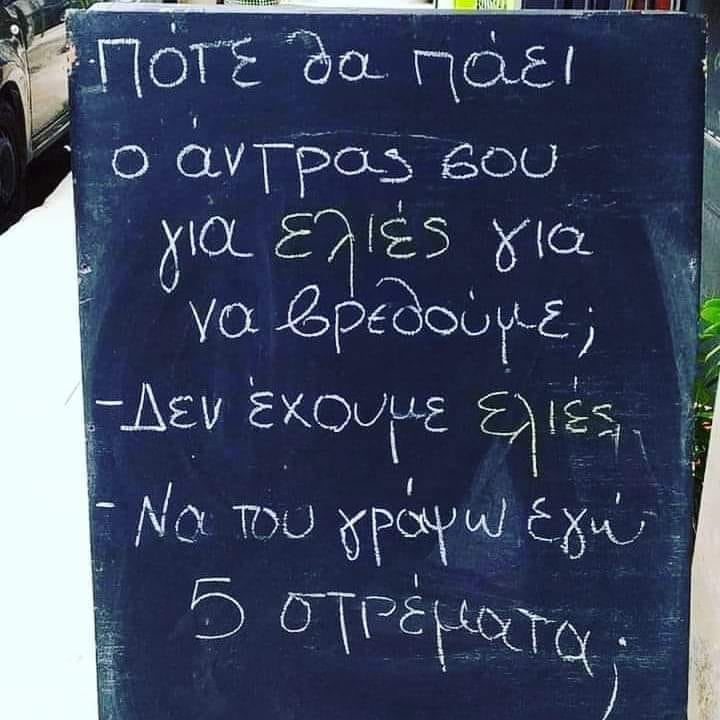 -Πότε θα πάει
ο άντρας σου
για ελιές για
να βρεθούμε;
-Δεν έχουμε ελιές
-Να του γράψω εγώ
5 στρέματα;